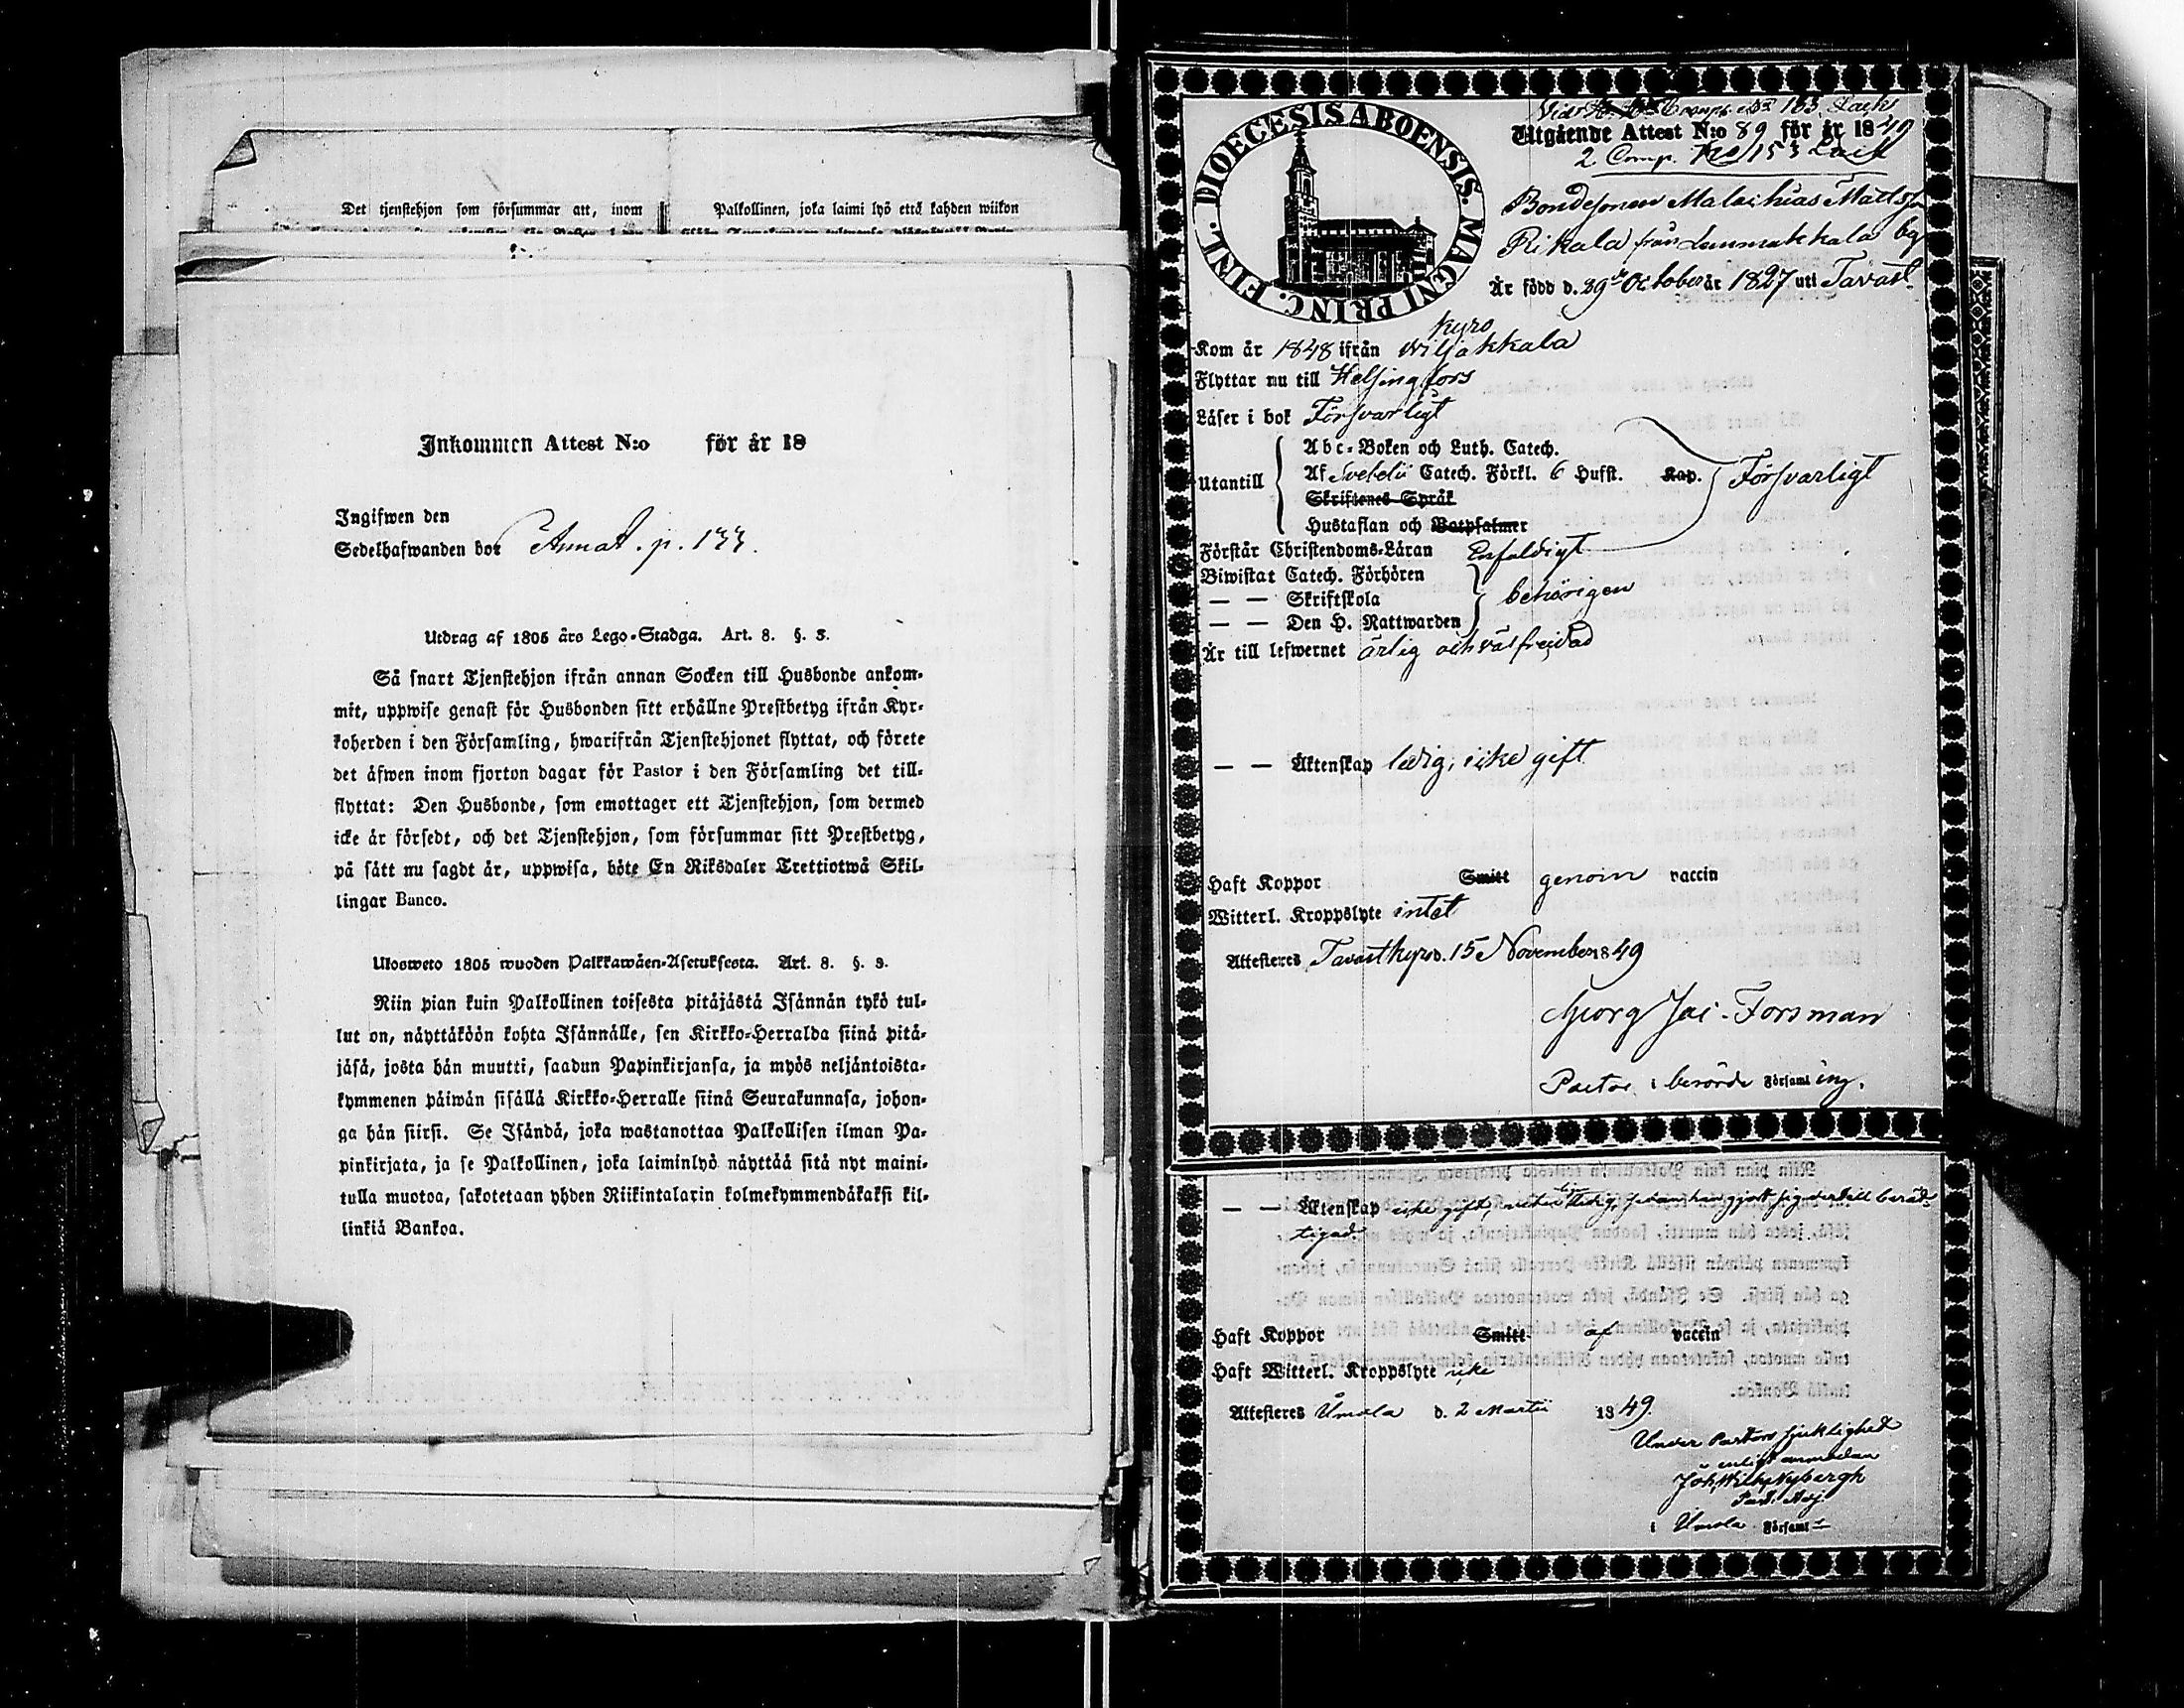 Det tjenstehjon som försummar att, inom
Palkollinen, joka laimi lyö että kahden wiikon
Inkommen Attest N:o för år 18
Ingifwen den
Sedelhafwanden bor Annat. p. 133.
Utdrag af 1805 års Lego-Stadga. Art. 8. §. 3.
Så snart Tjenstehjon ifrån annan Socken till Husbonde ankom-
mit, uppwise genast för Husbonden sitt erhållne Prestbetyg ifrån Kyr-
koherden i den Församling, hwarifrån Tjenstehjonet flyttat, och förete
det äfwen inom fjorton dagar för Pastor i den Församling det till-
flyttat: Den Husbonde, som emottager ett Tjenstehjon, som dermed
icke är försedt, och det Tjenstehjon, som försummar sitt Prestbetyg,
på sätt nu sagdt är, uppwisa, böte En Riksdaler Trettiotwå Skil-
lingar Banco.
Ulosweto 1805 wuoden Palkkawäen-Asetuksesta. Art. 8. §. 3.
Niin pian kuin Palkollinen toisesta pitäjästä Isännän tykö tul-
lut on, näyttäköön kohta Isännälle, sen Kirkko-Herralda siinä pitä-
jäsä, josta hän muutti, saadun Papinkirjansa, ja myös neljäntoista-
kymmenen päiwän sisällä Kirkko-Herralle siinä Seurakunnasa, johon-
ga hän siirsi. Se Isändä, joka wastanottaa Palkollisen ilman Pa-
pinkirjata, ja se Palkollinen, joka laiminlyö näyttää sitä nyt maini-
tulla muotoa, sakotetaan yhden Riikintalarin kolmekymmendäkaksi kil-
linkiä Bankoa.
DIOECESIS ABOENSIS. MAGNI PRINC. FINL.
Utgående Attest N:o 89 för år 1849
2 Comp. No 153
Bondesonen Malachias Matts
Rikala från Lemmakkala by
Är född d. 29 October år 1827 uti Tavast
kyro
Kom år 1848 ifrån Wiljakkala
Flyttar nu till Helsingfors
Läser i bok Försvarligt
Utantill
Abc-Boken och Luth. Catech.
Af Svebelii Catech. Förkl. 6 Hufst. Kap. Försvarligt
Skriftenes Språk
Hustaflan och Botpsalmer
Förstår Christendoms-Läran Enfaldigt
Biwistat Catech. Förhören
— — Skriftskola behörigen
— — Den H. Nattwarden
Är till lefwernet ärlig och välfrejdad
— — Äktenskap ledig, icke gift
Haft Koppor Smitt genom vaccin
Witterl. Kroppslyte intet
Attesteres Tavastkyro d. 15 November 1849
Georg Jac. Forsman
Pastor i berörde Församling.
— — Äktenskap icke gift,
tigad.
Haft Koppor Smitt af vaccin
Haft Witterl. Kroppslyte icke
Attesteres Umala d. 2 Martii 1849.
Under Pastors sjuklighet
enligt anmodan
Joh. Wilh. Nybergh
Past. Adj.
i Umala Församl